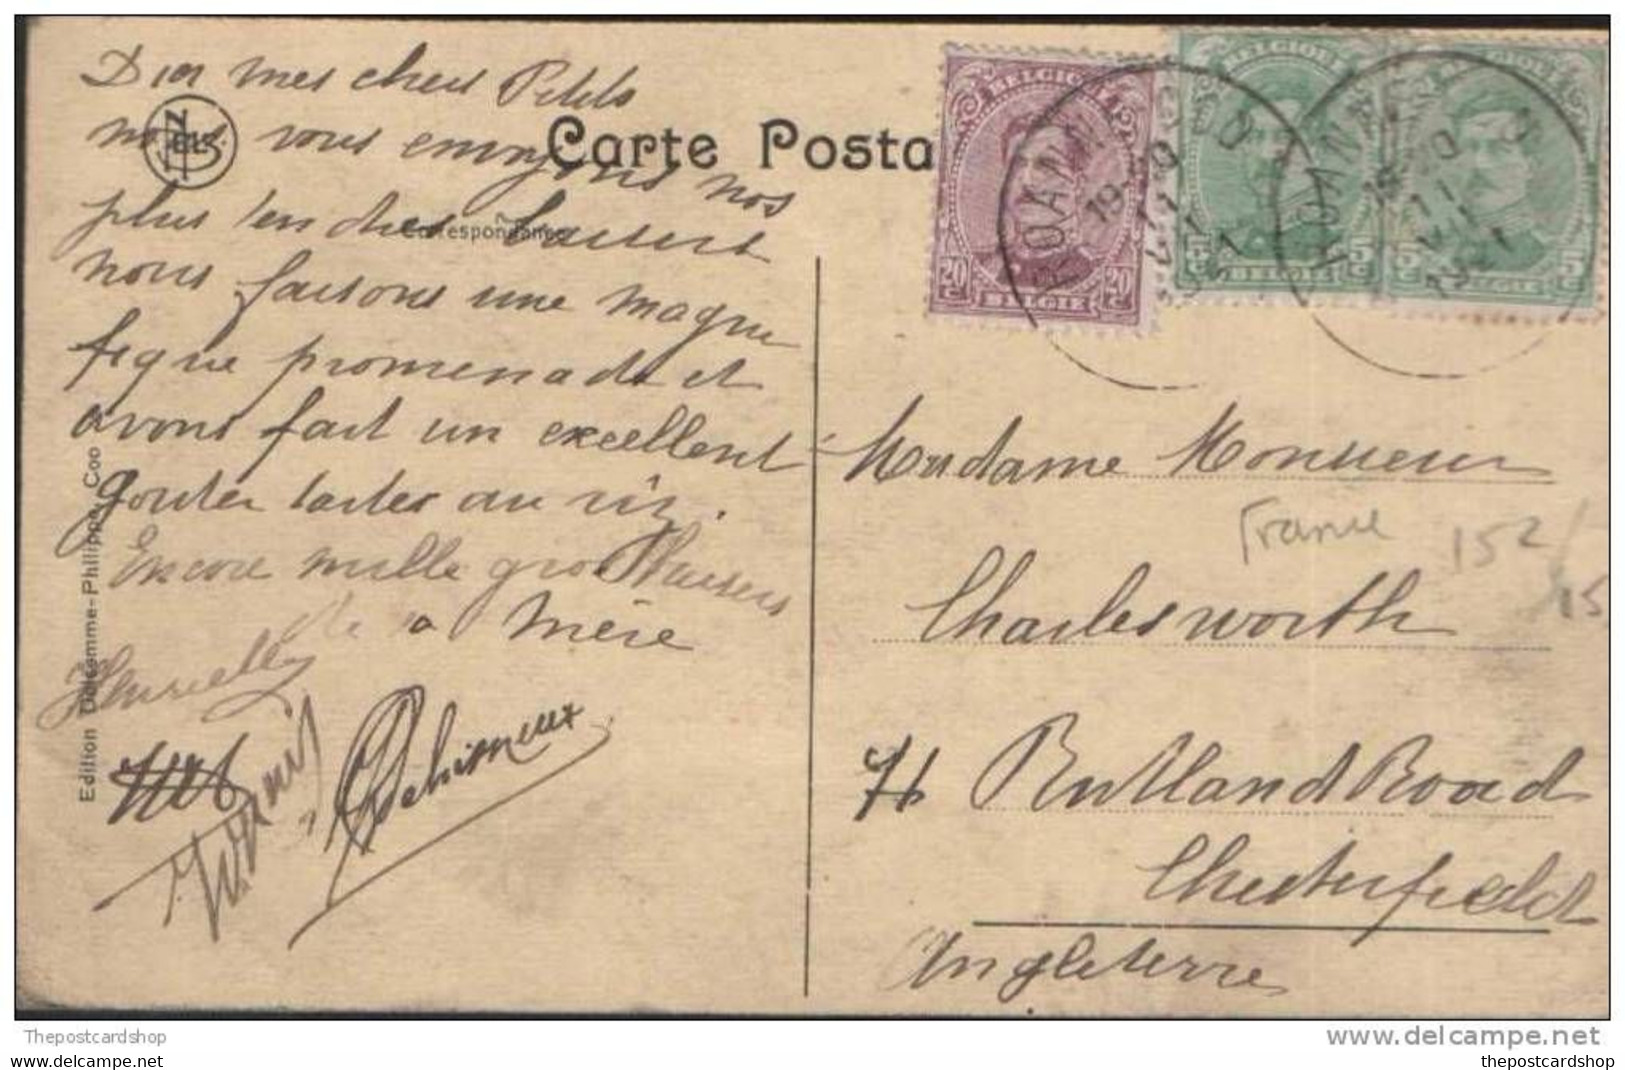 mes chers Petits
nous vous envoyons nos
plus tendres baisers
nous faisons une magni
fique promenade et
avons fait un excellent
gouter tartes au riz.
Encore mille gros baisers
de ta mère
Carte Posta
Correspondance
Edition Delsemme-Philippe, Coo
BELGIQUE
20 c 20 c
BELGIE
BELGIQUE
5 c 5 c
BELGIE
BELGIQUE
5 c 5 c
BELGIE
Madame
France
152/
15
Charlesworth
71 Rutland Road
Chesterfield
Angleterre
Thepostcardshop
www.delcampe.net
thepostcardshop